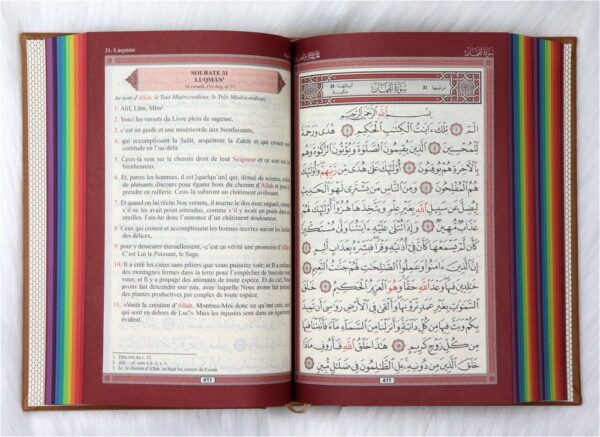 31. Luqmân
SOURATE 31
LUQMÂN¹
34 versets, Pré-hég. n° 57
Au nom d'Allah, le Tout Miséricordieux, le Très Miséricordieux.
1. Alif, Lâm, Mîm².
2. Voici les versets du Livre plein de sagesse,
3. c'est un guide et une miséricorde aux bienfaisants,
4. qui accomplissent la Salât, acquittent la Zakât et qui croient avec
certitude en l'au-delà.
5. Ceux-là sont sur le chemin droit de leur Seigneur et ce sont eux les
bienheureux.
6. Et, parmi les hommes, il est [quelqu'un] qui, dénué de science, achète
de plaisants discours pour égarer hors du chemin d'Allah et pour le
prendre en raillerie. Ceux-là subiront un châtiment avilissant.
7. Et quand on lui récite Nos versets, il tourne le dos avec orgueil, comme
s'il ne les avait point entendus, comme s'il y avait un poids dans ses
oreilles. Fais-lui donc l'annonce d'un châtiment douloureux.
8. Ceux qui croient et accomplissent les bonnes œuvres auront les Jardins
des délices.
9. pour y demeurer éternellement, -c'est en vérité une promesse d'Allah-.
C'est Lui le Puissant, le Sage.
10. Il a créé les cieux sans piliers que vous puissiez voir; et Il a enfoncé
des montagnes fermes dans la terre pour l'empêcher de basculer avec
vous; et Il y a propagé des animaux de toute espèce. Et du ciel, Nous
avons fait descendre une eau, avec laquelle Nous avons fait pousser
des plantes productives par couples de toute espèce.
11. «Voilà la création d'Allah. Montrez-Moi donc ce qu'ont créé ceux
qui sont en dehors de Lui?» Mais les injustes sont dans un égarement
évident.
1. Titre tiré du v. 12.
3. Le: le chemin d'Allah, ou bien les versets du Coran.
411
سورة لقمان
ترتيبها 31
سورة لقمان
آياتها 34
مكية
بسم الله الرحمن الرحيم
الٓمٓ ۝ تِلْكَ ءَايَٰتُ الْكِتَٰبِ الْحَكِيمِ ۝ هُدًى وَرَحْمَةً
لِّلْمُحْسِنِينَ ۝ الَّذِينَ يُقِيمُونَ الصَّلَوٰةَ وَيُؤْتُونَ الزَّكَوٰةَ وَهُم
بِالْآخِرَةِ هُمْ يُوقِنُونَ ۝ أُوْلَٰٓئِكَ عَلَىٰ هُدًى مِّن رَّبِّهِمْ وَأُوْلَٰٓئِكَ
هُمُ الْمُفْلِحُونَ ۝ وَمِنَ النَّاسِ مَن يَشْتَرِي لَهْوَ الْحَدِيثِ
لِيُضِلَّ عَن سَبِيلِ اللَّهِ بِغَيْرِ عِلْمٍ وَيَتَّخِذَهَا هُزُوًا أُوْلَٰٓئِكَ لَهُمْ
عَذَابٌ مُّهِينٌ ۝ وَإِذَا تُتْلَىٰ عَلَيْهِ ءَايَٰتُنَا وَلَّىٰ مُسْتَكْبِرًا
كَأَن لَّمْ يَسْمَعْهَا كَأَنَّ فِيٓ أُذُنَيْهِ وَقْرًا فَبَشِّرْهُ بِعَذَابٍ أَلِيمٍ
۝ إِنَّ الَّذِينَ ءَامَنُوا وَعَمِلُوا الصَّٰلِحَٰتِ لَهُمْ جَنَّٰتُ النَّعِيمِ
۝ خَٰلِدِينَ فِيهَا وَعْدَ اللَّهِ حَقًّا وَهُوَ الْعَزِيزُ الْحَكِيمُ ۝ خَلَقَ
السَّمَٰوَٰتِ بِغَيْرِ عَمَدٍ تَرَوْنَهَا وَأَلْقَىٰ فِي الْأَرْضِ رَوَٰسِيَ أَن تَمِيدَ
بِكُمْ وَبَثَّ فِيهَا مِن كُلِّ دَآبَّةٍ وَأَنزَلْنَا مِنَ السَّمَآءِ مَآءً فَأَنۢبَتْنَا فِيهَا
مِن كُلِّ زَوْجٍ كَرِيمٍ ۝ هَٰذَا خَلْقُ اللَّهِ فَأَرُونِي مَاذَا
خَلَقَ الَّذِينَ مِن دُونِهِ بَلِ الظَّٰلِمُونَ فِي ضَلَٰلٍ مُّبِينٍ ۝
411